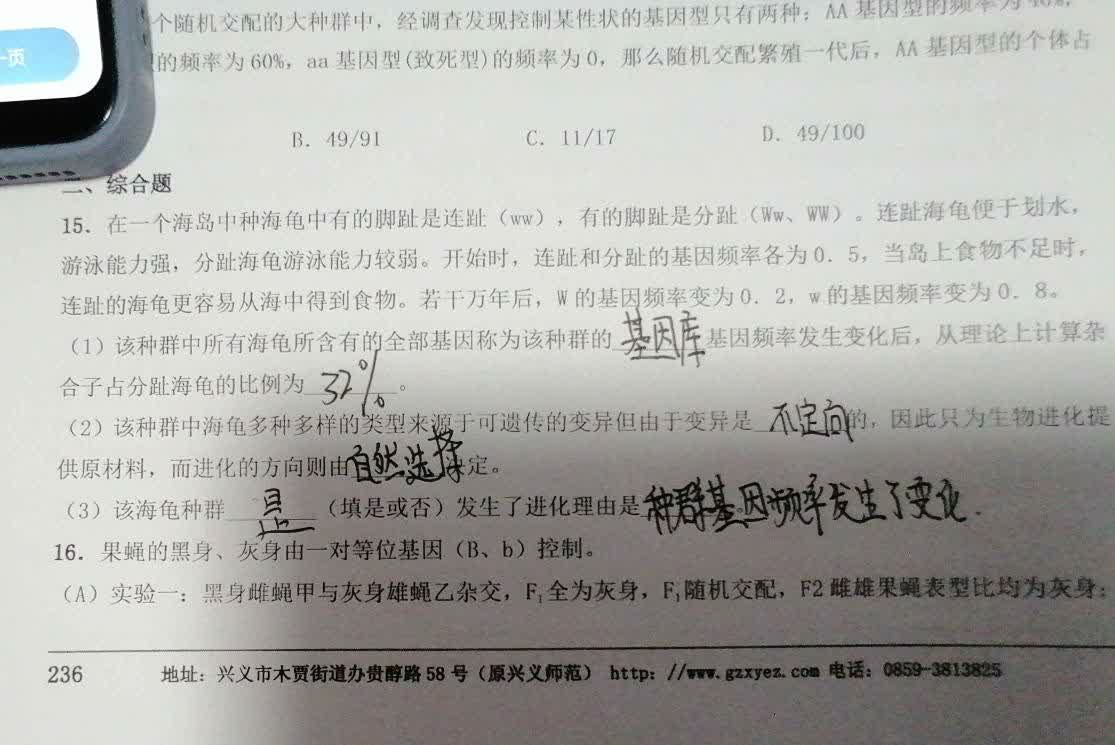 一页
个随机交配的大种群中，经调查发现控制某性状的基因型只有两种：AA 基因型的频率为40%，
的频率为 60%，aa 基因型(致死型)的频率为 0，那么随机交配繁殖一代后，AA 基因型的个体占
B. 49/91 C. 11/17 D. 49/100
二、综合题
15. 在一个海岛中种海龟中有的脚趾是连趾（ww），有的脚趾是分趾（Ww、WW）。连趾海龟便于划水，
游泳能力强，分趾海龟游泳能力较弱。开始时，连趾和分趾的基因频率各为0．5，当岛上食物不足时，
连趾的海龟更容易从海中得到食物。若干万年后，W 的基因频率变为0．2，w 的基因频率变为 0．8。
（1）该种群中所有海龟所含有的全部基因称为该种群的 基因库 基因频率发生变化后，从理论上计算杂
合子占分趾海龟的比例为 32% 。
（2）该种群中海龟多种多样的类型来源于可遗传的变异但由于变异是 不定向的，因此只为生物进化提
供原材料，而进化的方向则由自然选择决定。
（3）该海龟种群 是 （填是或否）发生了进化理由是种群基因频率发生了变化.
16. 果蝇的黑身、灰身由一对等位基因（B、b）控制。
（A）实验一：黑身雌蝇甲与灰身雄蝇乙杂交，F₁全为灰身，F₁随机交配，F2 雌雄果蝇表型比均为灰身：
236 地址：兴义市木贾街道办贵醇路 58 号（原兴义师范） http：//www.gzxyez.com 电话：0859-3813825